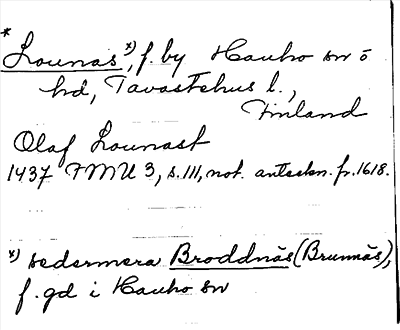 * Lounas x), f. by Hauho sn ö
hd, Tavastehus l.,
Finland
Olaf Lounast
1437 FMU 3, s. 111, not. anteckn. fr. 1618.
x) sedermera Broddnäs (Brunnäs),
f. gd i Hauho sn